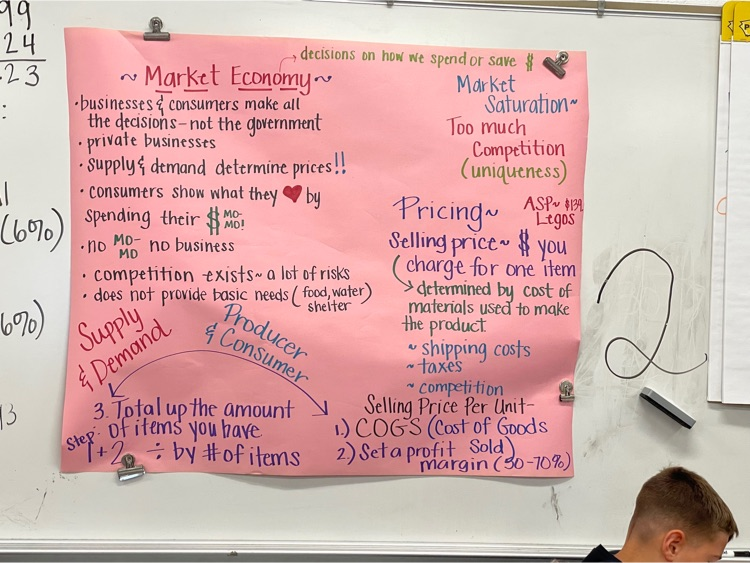 99
24
23
:
(6%)
6%)
13
decisions on how we spend or save $
~ Market Economy ~
• businesses & consumers make all
the decisions – not the government
• private businesses
• supply & demand determine prices!!
• consumers show what they ❤ by
spending their $ MO-
MO!
• no MO-
MO no business
• competition exists ~ a lot of risks
• does not provide basic needs (food, water)
shelter
Supply
& Demand
Producer
& Consumer
3. Total up the amount
of items you have
Step:
1 + 2 ÷ by # of items
Market
Saturation~
Too much
Competition
(uniqueness)
Pricing~
ASP~ $139
Legos
Selling price~ $ you
charge for one item
determined by cost of
materials used to make
the product
~ shipping costs
~ taxes
~ competition
Selling Price Per Unit-
1.) COGS (Cost of Goods
Sold)
2) Set a profit
margin (50-70%)
2